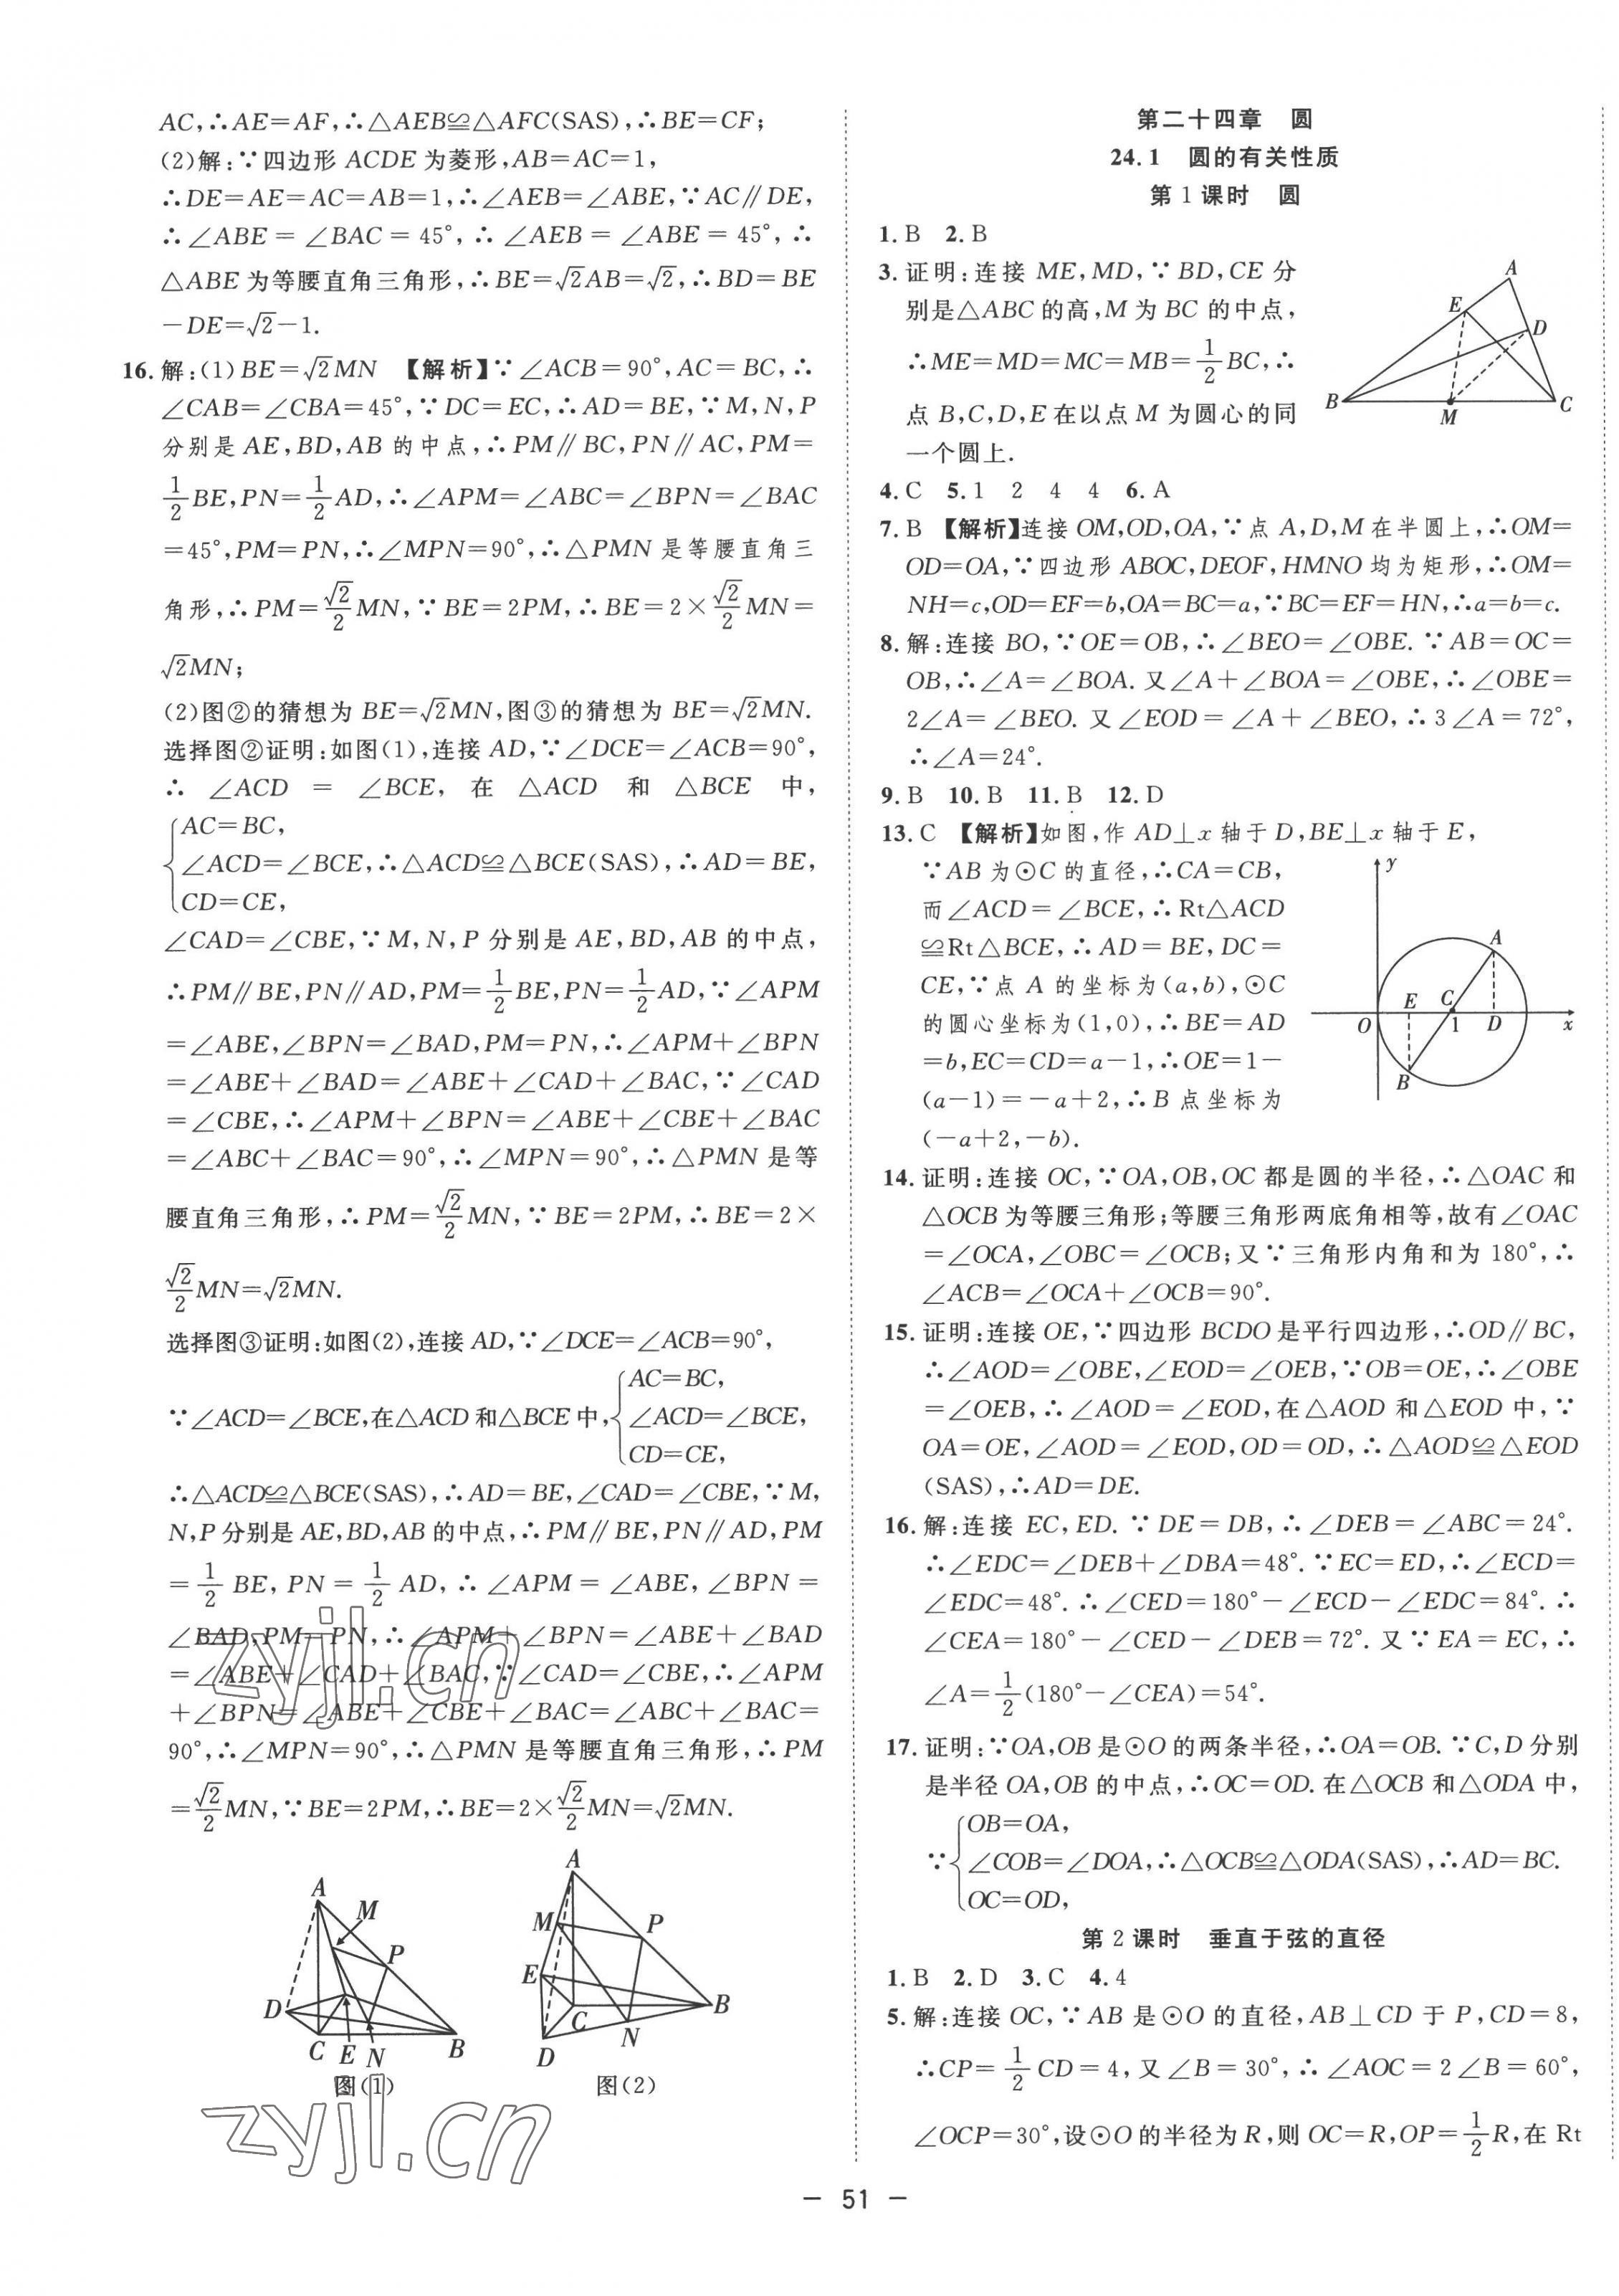 AC,∴AE=AF,∴△AEB≌△AFC(SAS),∴BE=CF;
(2)解:∵四边形 ACDE 为菱形,AB=AC=1,
∴DE=AE=AC=AB=1,∴∠AEB=∠ABE,∵AC∥DE,
∴∠ABE=∠BAC=45°,∴∠AEB=∠ABE=45°,∴
△ABE 为等腰直角三角形,∴BE=√2AB=√2,∴BD=BE
-DE=√2-1.
16.解:(1)BE=√2MN 【解析】∵∠ACB=90°,AC=BC,∴
∠CAB=∠CBA=45°,∵DC=EC,∴AD=BE,∵M,N,P
分别是 AE,BD,AB 的中点,∴PM∥BC,PN∥AC,PM=
1/2 BE,PN=1/2 AD,∴∠APM=∠ABC=∠BPN=∠BAC
=45°,PM=PN,∴∠MPN=90°,∴△PMN 是等腰直角三
角形,∴PM=√2/2 MN,∵BE=2PM,∴BE=2×√2/2 MN=
√2MN;
(2)图②的猜想为 BE=√2MN,图③的猜想为 BE=√2MN.
选择图②证明:如图(1),连接 AD,∵∠DCE=∠ACB=90°,
∴ ∠ACD = ∠BCE, 在 △ACD 和 △BCE 中,
AC=BC,
∠ACD=∠BCE,∴△ACD≌△BCE(SAS),∴AD=BE,
CD=CE,
∠CAD=∠CBE,∵M,N,P 分别是 AE,BD,AB 的中点,
∴PM∥BE,PN∥AD,PM=1/2 BE,PN=1/2 AD,∵∠APM
=∠ABE,∠BPN=∠BAD,PM=PN,∴∠APM+∠BPN
=∠ABE+∠BAD=∠ABE+∠CAD+∠BAC,∵∠CAD
=∠CBE,∴∠APM+∠BPN=∠ABE+∠CBE+∠BAC
=∠ABC+∠BAC=90°,∴∠MPN=90°,∴△PMN 是等
腰直角三角形,∴PM=√2/2 MN,∵BE=2PM,∴BE=2×
√2/2 MN=√2MN.
选择图③证明:如图(2),连接 AD,∵∠DCE=∠ACB=90°,
AC=BC,
∵∠ACD=∠BCE,在△ACD 和△BCE 中,∠ACD=∠BCE,
CD=CE,
∴△ACD≌△BCE(SAS),∴AD=BE,∠CAD=∠CBE,∵M,
N,P 分别是 AE,BD,AB 的中点,∴PM∥BE,PN∥AD,PM
=1/2 BE,PN=1/2 AD,∴∠APM=∠ABE,∠BPN=
∠BAD,PM=PN,∴∠APM+∠BPN=∠ABE+∠BAD
=∠ABE+∠CAD+∠BAC,∵∠CAD=∠CBE,∴∠APM
+∠BPN=∠ABE+∠CBE+∠BAC=∠ABC+∠BAC=
90°,∴∠MPN=90°,∴△PMN 是等腰直角三角形,∴PM
=√2/2 MN,∵BE=2PM,∴BE=2×√2/2 MN=√2MN.
zyjl.cn
A M P D C E N B
图(1)
A M P E C B N D
图(2)
zyjl.cn
第二十四章 圆
24.1 圆的有关性质
第 1 课时 圆
1.B 2.B
3.证明:连接 ME,MD,∵BD,CE 分
别是△ABC 的高,M 为 BC 的中点,
∴ME=MD=MC=MB=1/2 BC,∴
点 B,C,D,E 在以点 M 为圆心的同
一个圆上.
A E D B M C
4.C 5.1 2 4 4 6.A
7.B 【解析】连接 OM,OD,OA,∵点 A,D,M 在半圆上,∴OM=
OD=OA,∵四边形 ABOC,DEOF,HMNO 均为矩形,∴OM=
NH=c,OD=EF=b,OA=BC=a,∵BC=EF=HN,∴a=b=c.
8.解:连接 BO,∵OE=OB,∴∠BEO=∠OBE.∵AB=OC=
OB,∴∠A=∠BOA.又∠A+∠BOA=∠OBE,∴∠OBE=
2∠A=∠BEO.又∠EOD=∠A+∠BEO,∴3∠A=72°,
∴∠A=24°.
9.B 10.B 11.B 12.D
13.C 【解析】如图,作 AD⊥x 轴于 D,BE⊥x 轴于 E,
∵AB 为⊙C 的直径,∴CA=CB,
而∠ACD=∠BCE,∴Rt△ACD
≌Rt△BCE,∴AD=BE,DC=
CE,∵点 A 的坐标为(a,b),⊙C
的圆心坐标为(1,0),∴BE=AD
=b,EC=CD=a-1,∴OE=1-
(a-1)=-a+2,∴B 点坐标为
(-a+2,-b).
y A E C O 1 D x B
14.证明:连接 OC,∵OA,OB,OC 都是圆的半径,∴△OAC 和
△OCB 为等腰三角形;等腰三角形两底角相等,故有∠OAC
=∠OCA,∠OBC=∠OCB;又∵三角形内角和为 180°,∴
∠ACB=∠OCA+∠OCB=90°.
15.证明:连接 OE,∵四边形 BCDO 是平行四边形,∴OD∥BC,
∴∠AOD=∠OBE,∠EOD=∠OEB,∵OB=OE,∴∠OBE
=∠OEB,∴∠AOD=∠EOD,在△AOD 和△EOD 中,∵
OA=OE,∠AOD=∠EOD,OD=OD,∴△AOD≌△EOD
(SAS),∴AD=DE.
16.解:连接 EC,ED.∵DE=DB,∴∠DEB=∠ABC=24°.
∴∠EDC=∠DEB+∠DBA=48°.∵EC=ED,∴∠ECD=
∠EDC=48°.∴∠CED=180°-∠ECD-∠EDC=84°.∴
∠CEA=180°-∠CED-∠DEB=72°.又∵EA=EC,∴
∠A=1/2(180°-∠CEA)=54°.
17.证明:∵OA,OB 是⊙O 的两条半径,∴OA=OB.∵C,D 分别
是半径 OA,OB 的中点,∴OC=OD.在△OCB 和△ODA 中,
OB=OA,
∵∠COB=∠DOA,∴△OCB≌△ODA(SAS),∴AD=BC.
OC=OD,
第 2 课时 垂直于弦的直径
1.B 2.D 3.C 4.4
5.解:连接 OC,∵AB 是⊙O 的直径,AB⊥CD 于 P,CD=8,
∴CP=1/2 CD=4,又∠B=30°,∴∠AOC=2∠B=60°,
∠OCP=30°,设⊙O 的半径为 R,则 OC=R,OP=1/2 R,在 Rt
— 51 —